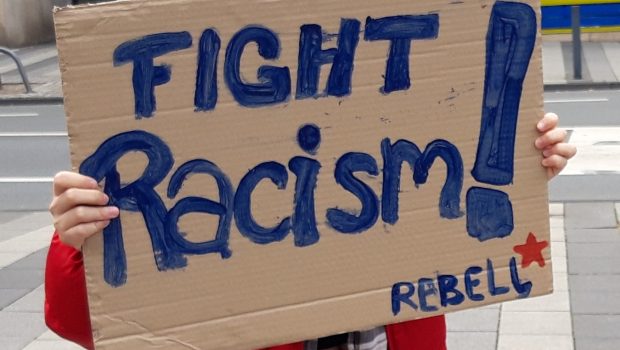 FIGHT
Racism!
REBELL